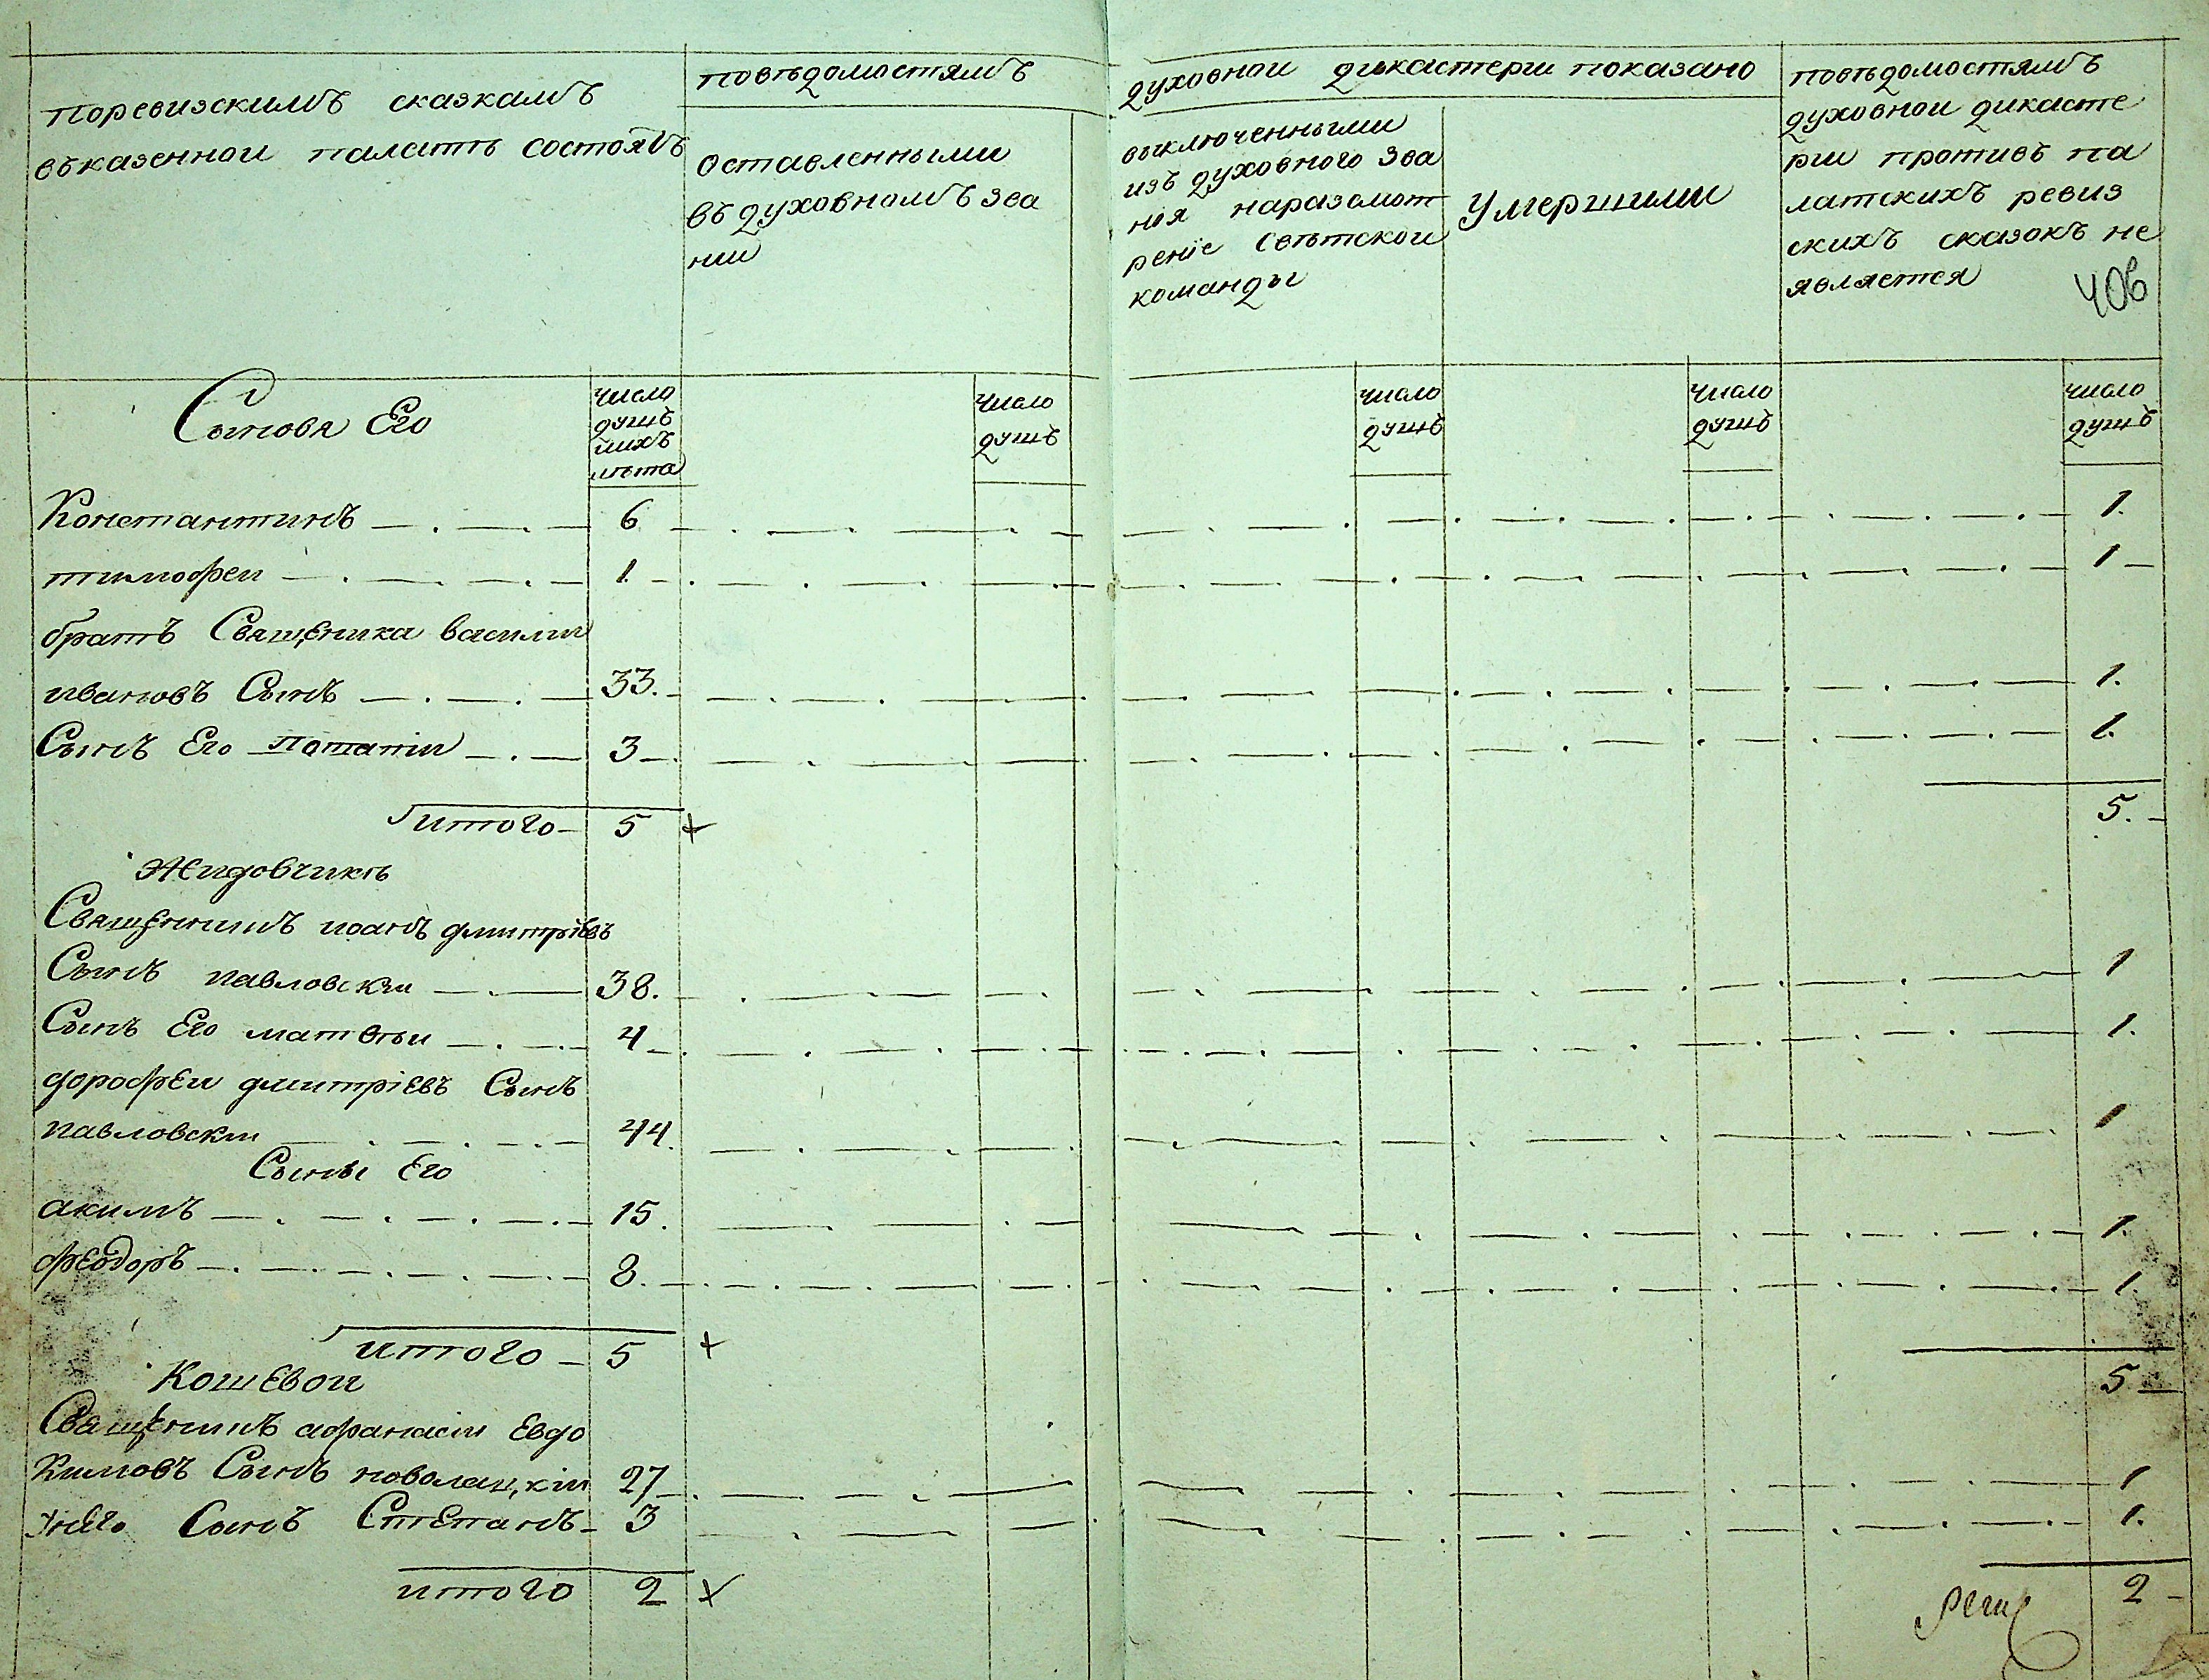 поревизскимъ сказкамъ
въказенной палатѣ состоятъ
повѣдомостямъ
оставленными
въ духовномъ зва
нии
духовной дикастерии показано
выключенными
изъ духовного зва
ния наразсмот
рение свѣтской
команды
умершими
повѣдомостямъ
духовной дикасте
рии противъ па
латскихъ ревиз
скихъ сказокъ не
является
40в
Сыновя Его
число
душъ
ихъ
лѣта
число
душъ
число
душъ
число
душъ
число
душъ
Константинъ 6 1.
тимофеи 1. 1
братъ Священика василии
ивановъ Сынъ 33. 1.
Сынъ Его потапіи 3 1.
итого 5 + 5.
Жидовчикѣ
Священникъ иоанъ дмитріевъ
Сынъ павловскіи 38. 1
Сынъ Его матѳѣи 4 1.
дорофеи дмитріевъ Сынъ
павловскіи 44. 1
Сыны Его
акимъ 15. 1.
феодоръ 8. 1.
итого 5 + 5
Кошевои
Священникъ афанасіи Евдо
кимовъ Сынъ новолацкіи 27 1
унего Сынъ Степанъ 3 1.
итого 2 + 2